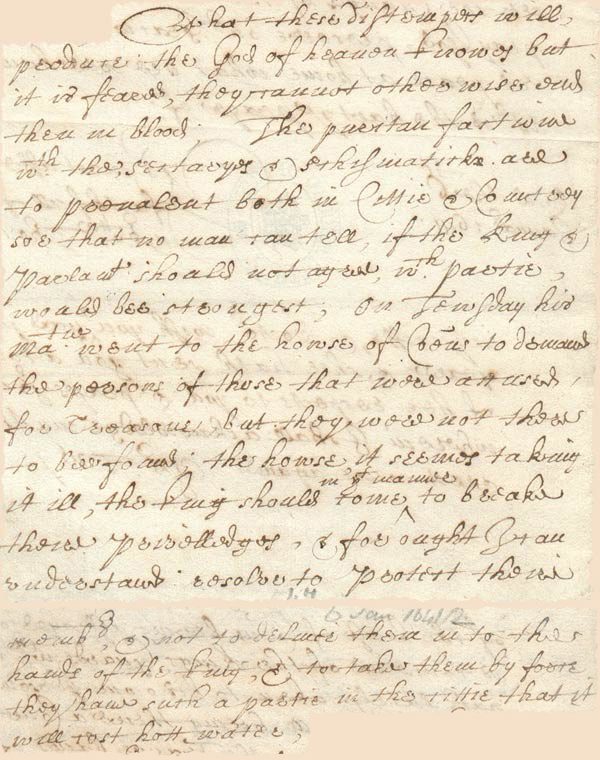 What these distempers will,
produce the God of heaven knowes but
it is feared, they cannot otherwise end
then in blood. The puritan factwine
wth the, sectaryes & schismaticks. are
to prevalent both in Cittie & Countrey
soe that no man can tell, if the king &
Parlamt should not agree, wch partie,
would bee strongest, On Tewsday his
Matie went to the howse of Comons to demaund
the persons of those that were accused,
for Treason, but they were not there
to bee found; the howse it seemes taking
it ill, the king should come, in yt manner to breake
there priveledges, & for ought I can
understand resolve to Protect there
6 Jan 1641/2
membrs, & not to deliver them in to the
hands of the king, & to take them by force
they have such a partie in the cittie that it
will cost hott water,